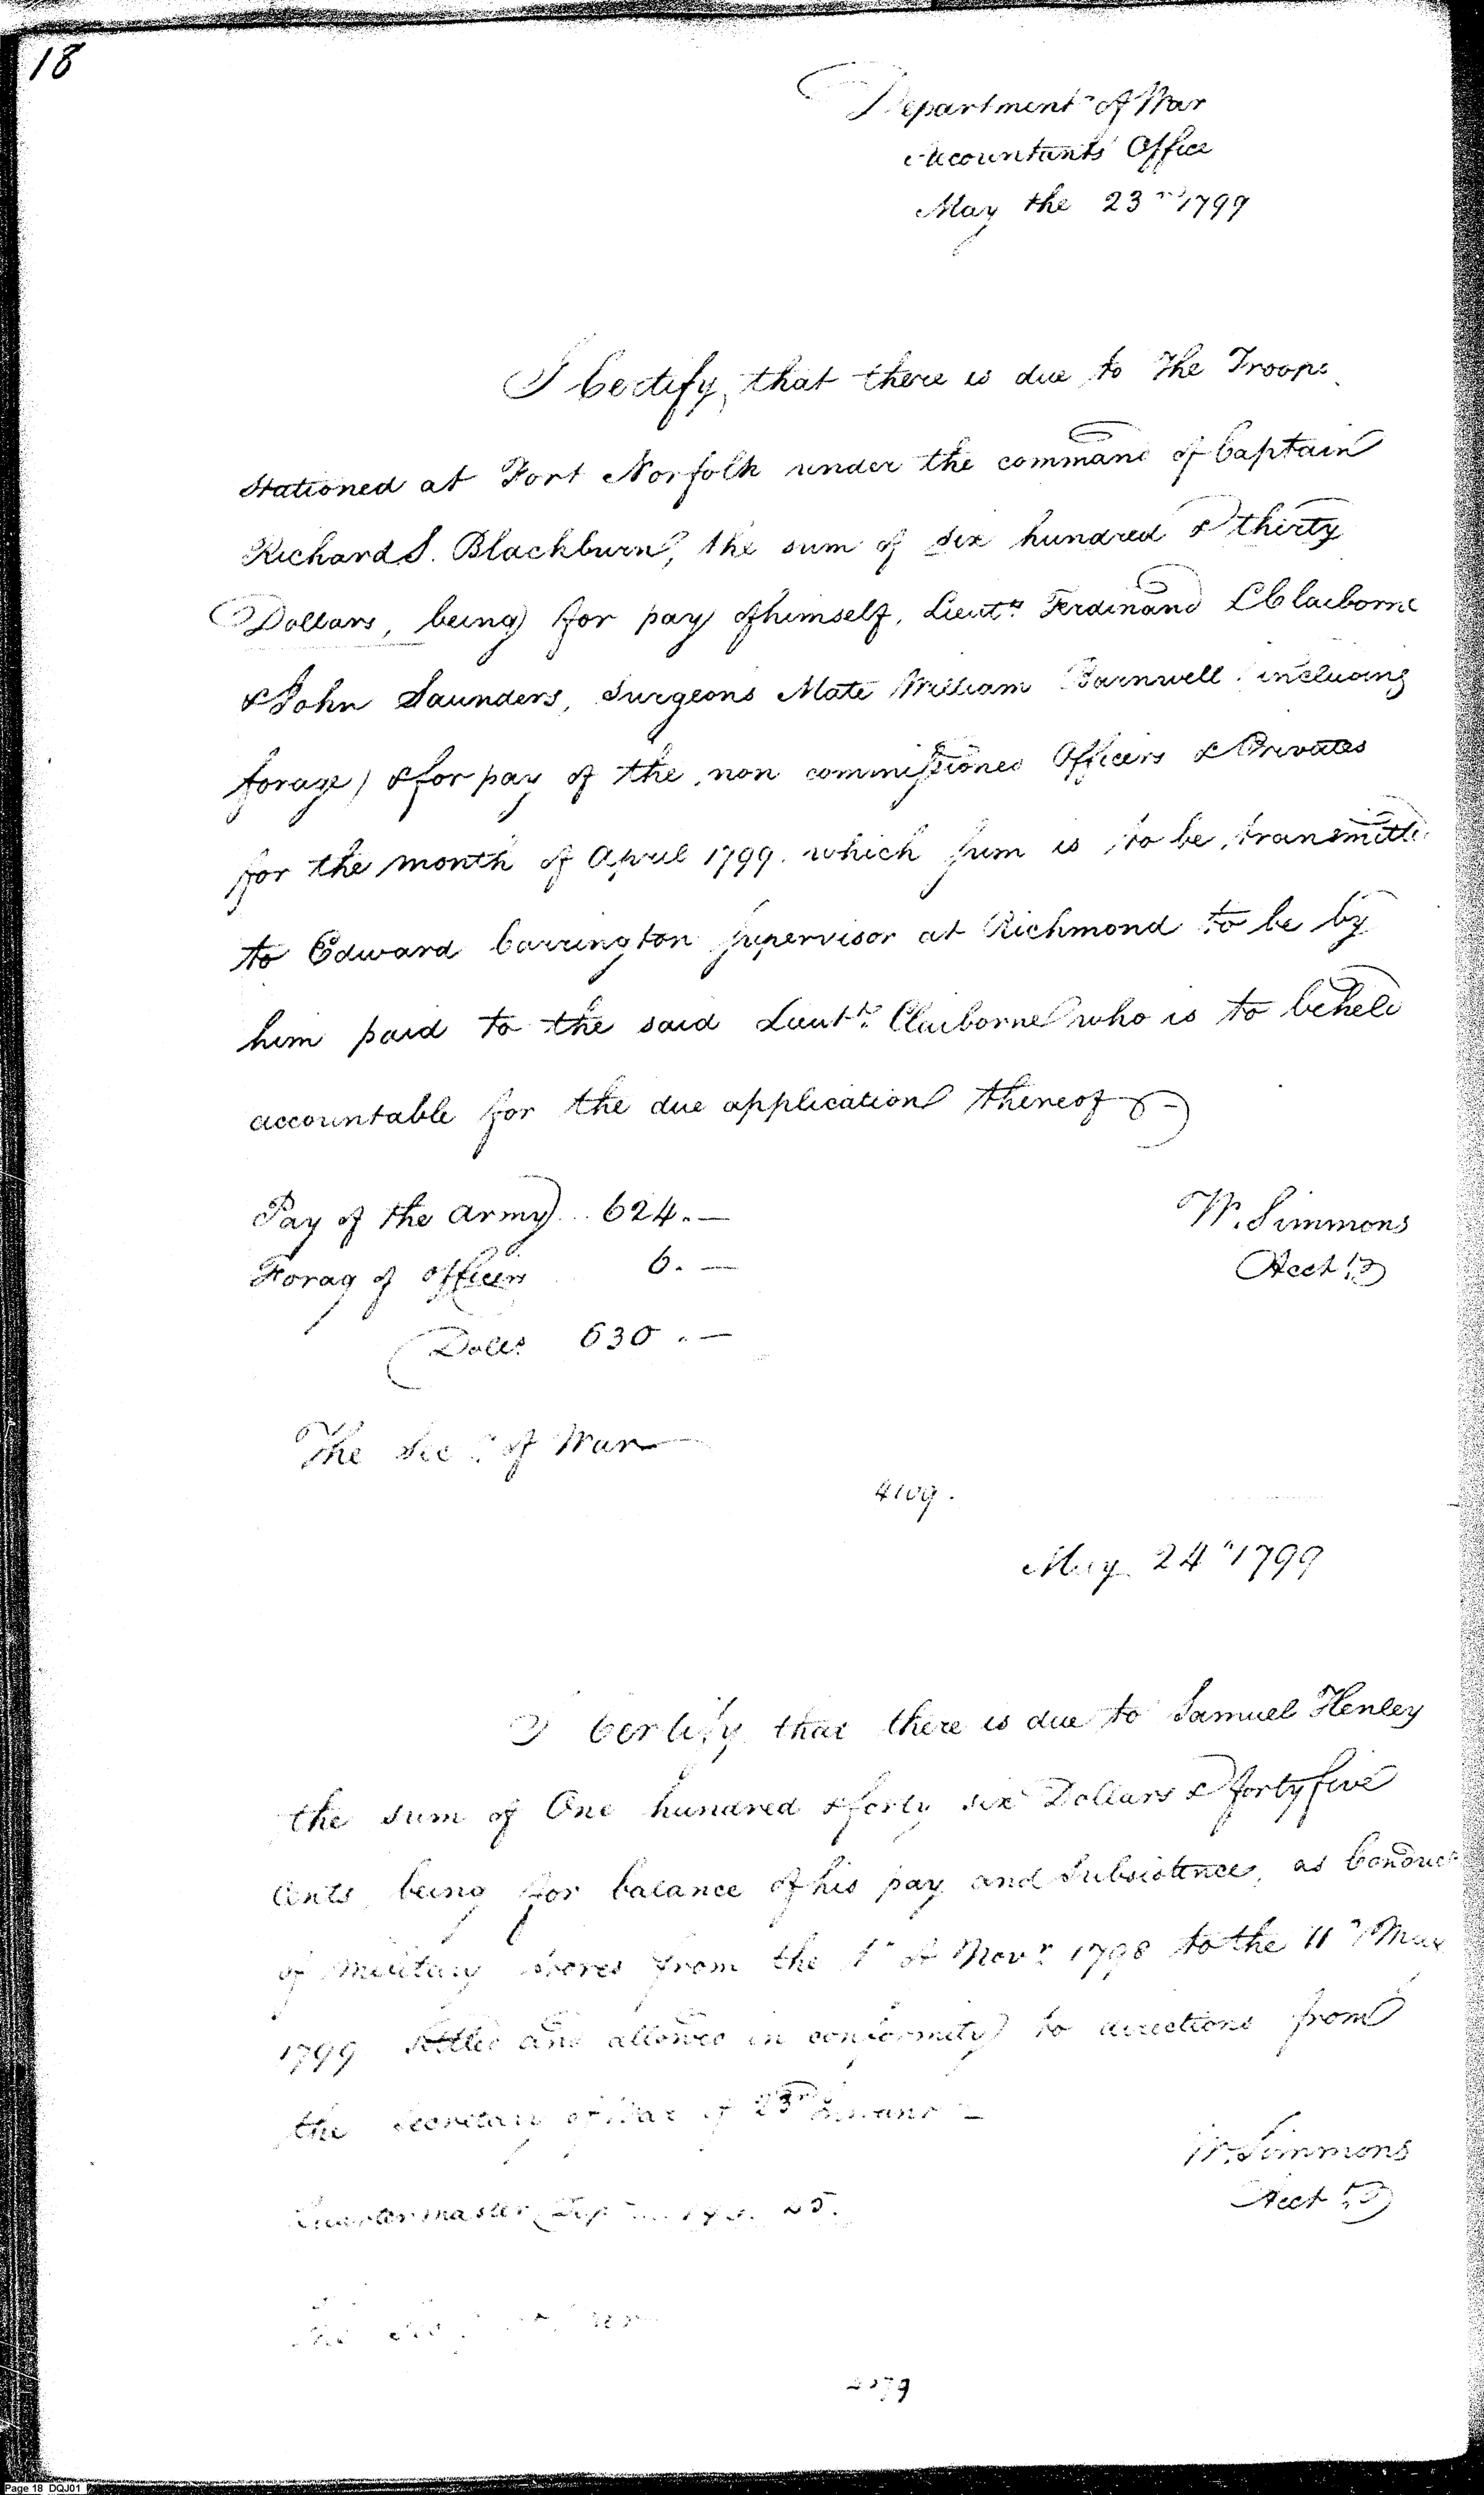 18
Department of War
Accountants Office
May the 23rd 1799
I Certify, that there is due to The Troops
stationed at Fort Norfolk under the command of Captain
Richard S. Blackburn, the sum of six hundred & thirty
Dollars, being for pay of himself, Lieuts Ferdinand L Claiborne
& John Saunders, Surgeons Mate William Barnwell (including
forage) & for pay of the non commissioned Officers & Privates
for the month of April 1799. which sum is to be transmitted
to Edward Carrington Supervisor at Richmond to be by
him paid to the said Lieutt. Claiborne who is to be held
accountable for the due application thereof
Pay of the army ... 624.—
W. Simmons
Forag of officers 6.—
Acct
Dolls 630.—
The Secy. of War
4109.
May 24th 1799
I Certify that there is due to Samuel Henley
the sum of One hundred & forty six Dollars & forty five
Cents, being for balance of his pay and Subsistence, as Conduct
of Military Stores from the 1st of Novr. 1798 to the 11th May
1799 settled and allowed in conformity to directions from
the Secretary of War of 23rd Instant —
W. Simmons
Acct
Quartermaster Dep
The